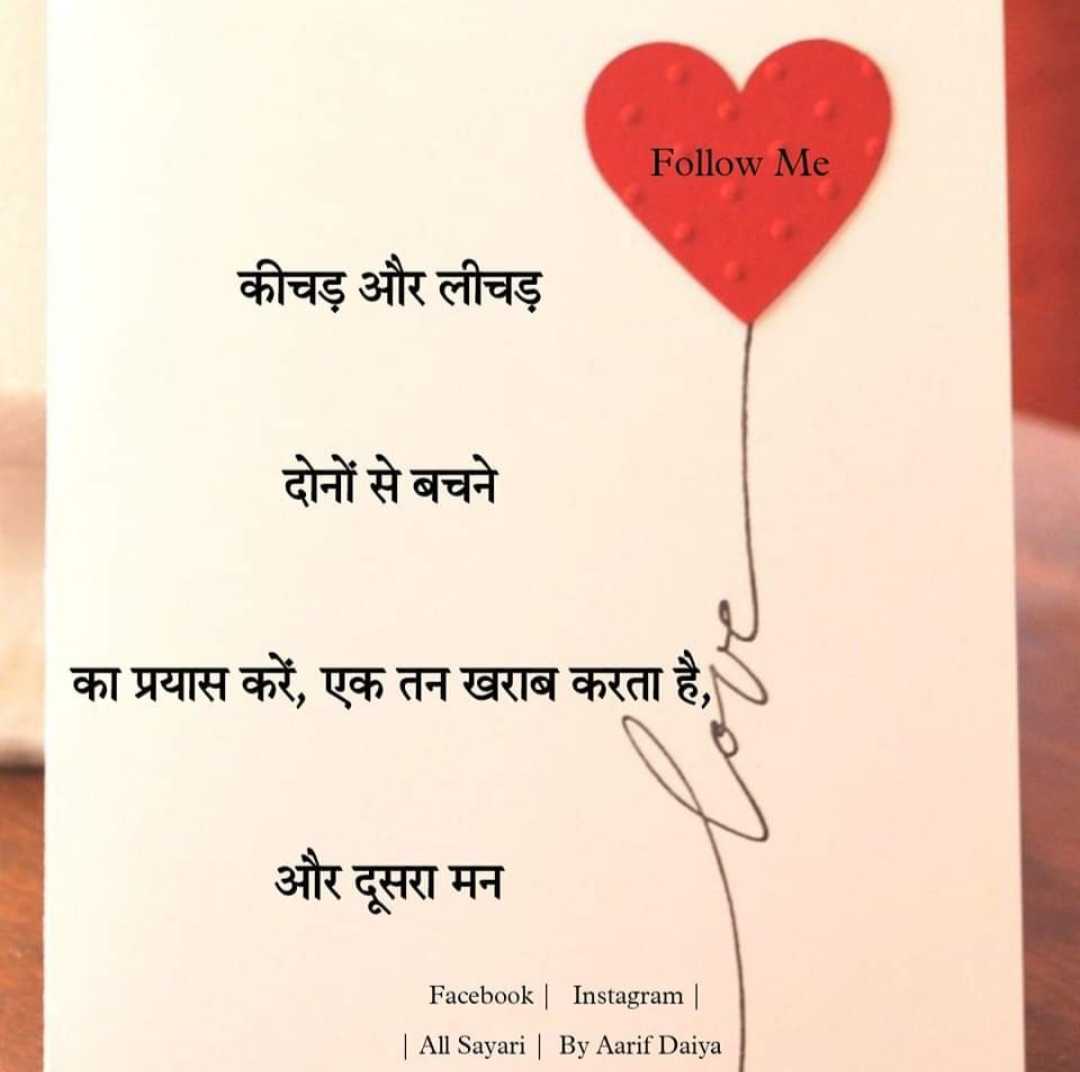 Follow Me
कीचड़ और लीचड़
दोनों से बचने
का प्रयास करें, एक तन खराब करता है,
love
और दूसरा मन
Facebook | Instagram |
| All Sayari | By Aarif Daiya